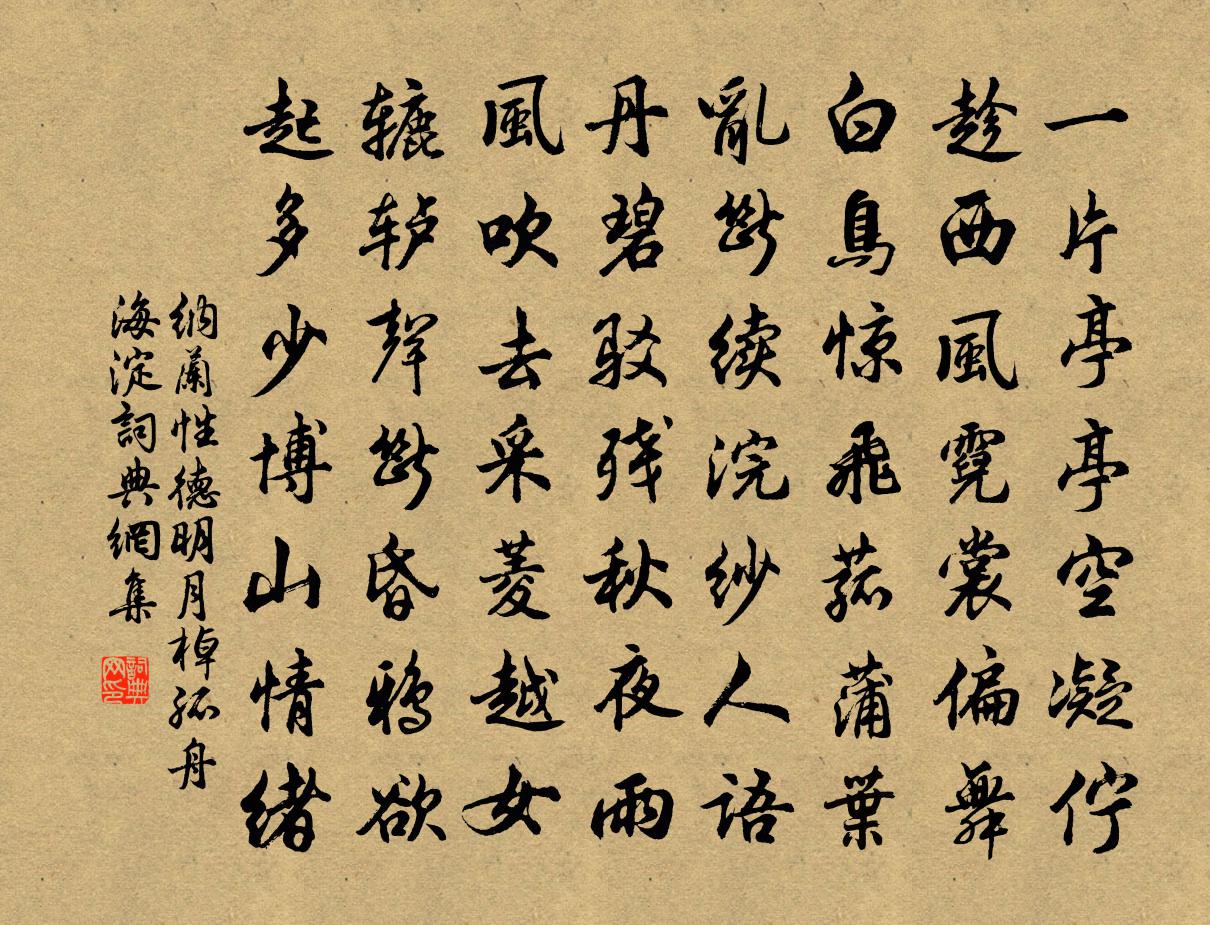 一片亭亭空凝佇
趁西風霓裳偏舞
白鳥惊飛菰蒲葉
亂斷续浣紗人语
丹碧驳残秋夜雨
風吹去采菱越女
辘轳聲斷昏鸦欲
起多少博山情緒
纳蘭性德明月棹孤舟
海淀詞典網集
詞典网印